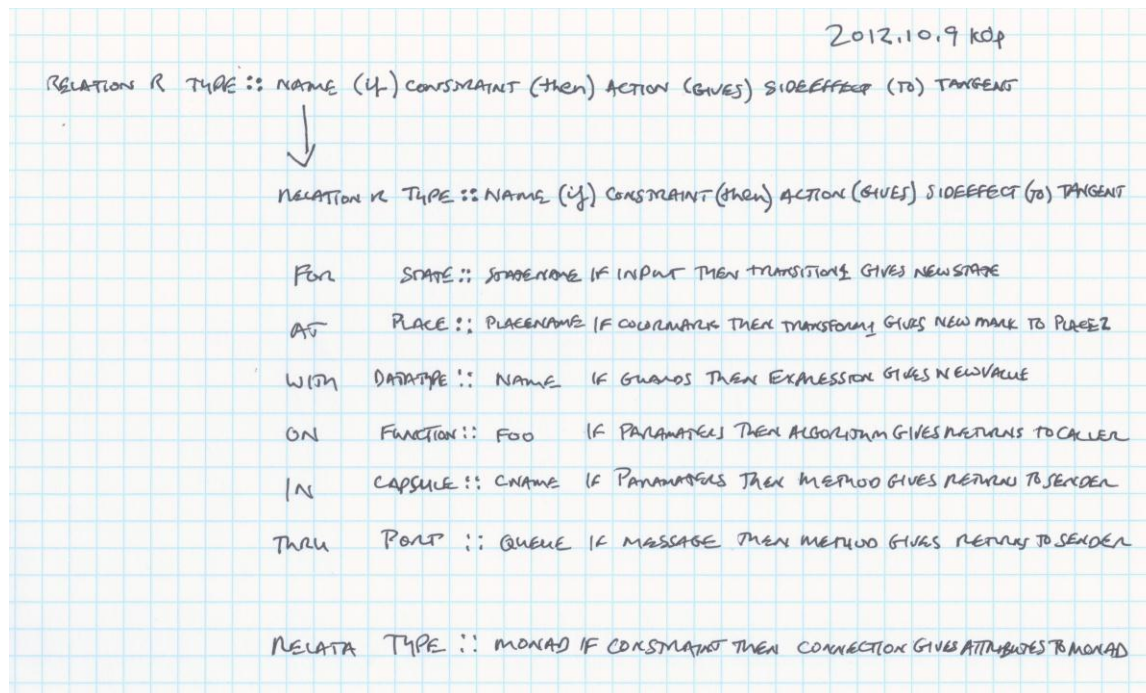 2012.10.9 kdp
RELATION R TYPE :: NAME (if) CONSTRAINT (then) ACTION (GIVES) SIDEEFFECT (TO) TANGENT
RELATION R TYPE :: NAME (if) CONSTRAINT (then) ACTION (GIVES) SIDEEFFECT (TO) TANGENT
FOR STATE :: STATENAME IF INPUT THEN TRANSITION1 GIVES NEWSTATE
AT PLACE :: PLACENAME IF COLORMARK THEN TRANSFORM1 GIVES NEW MARK TO PLACE2
WITH DATATYPE :: NAME IF GUARDS THEN EXPRESSION GIVES NEWVALUE
ON FUNCTION :: FOO IF PARAMATERS THEN ALGORITHM GIVES RETURNS TO CALLER
IN CAPSULE :: CNAME IF PARAMATERS THEN METHOD GIVES RETURNS TO SENDER
THRU PORT :: QUEUE IF MESSAGE THEN METHOD GIVES RETURNS TO SENDER
RELATA TYPE :: MONAD IF CONSTRAINT THEN CONNECTION GIVES ATTRIBUTES TO MONAD